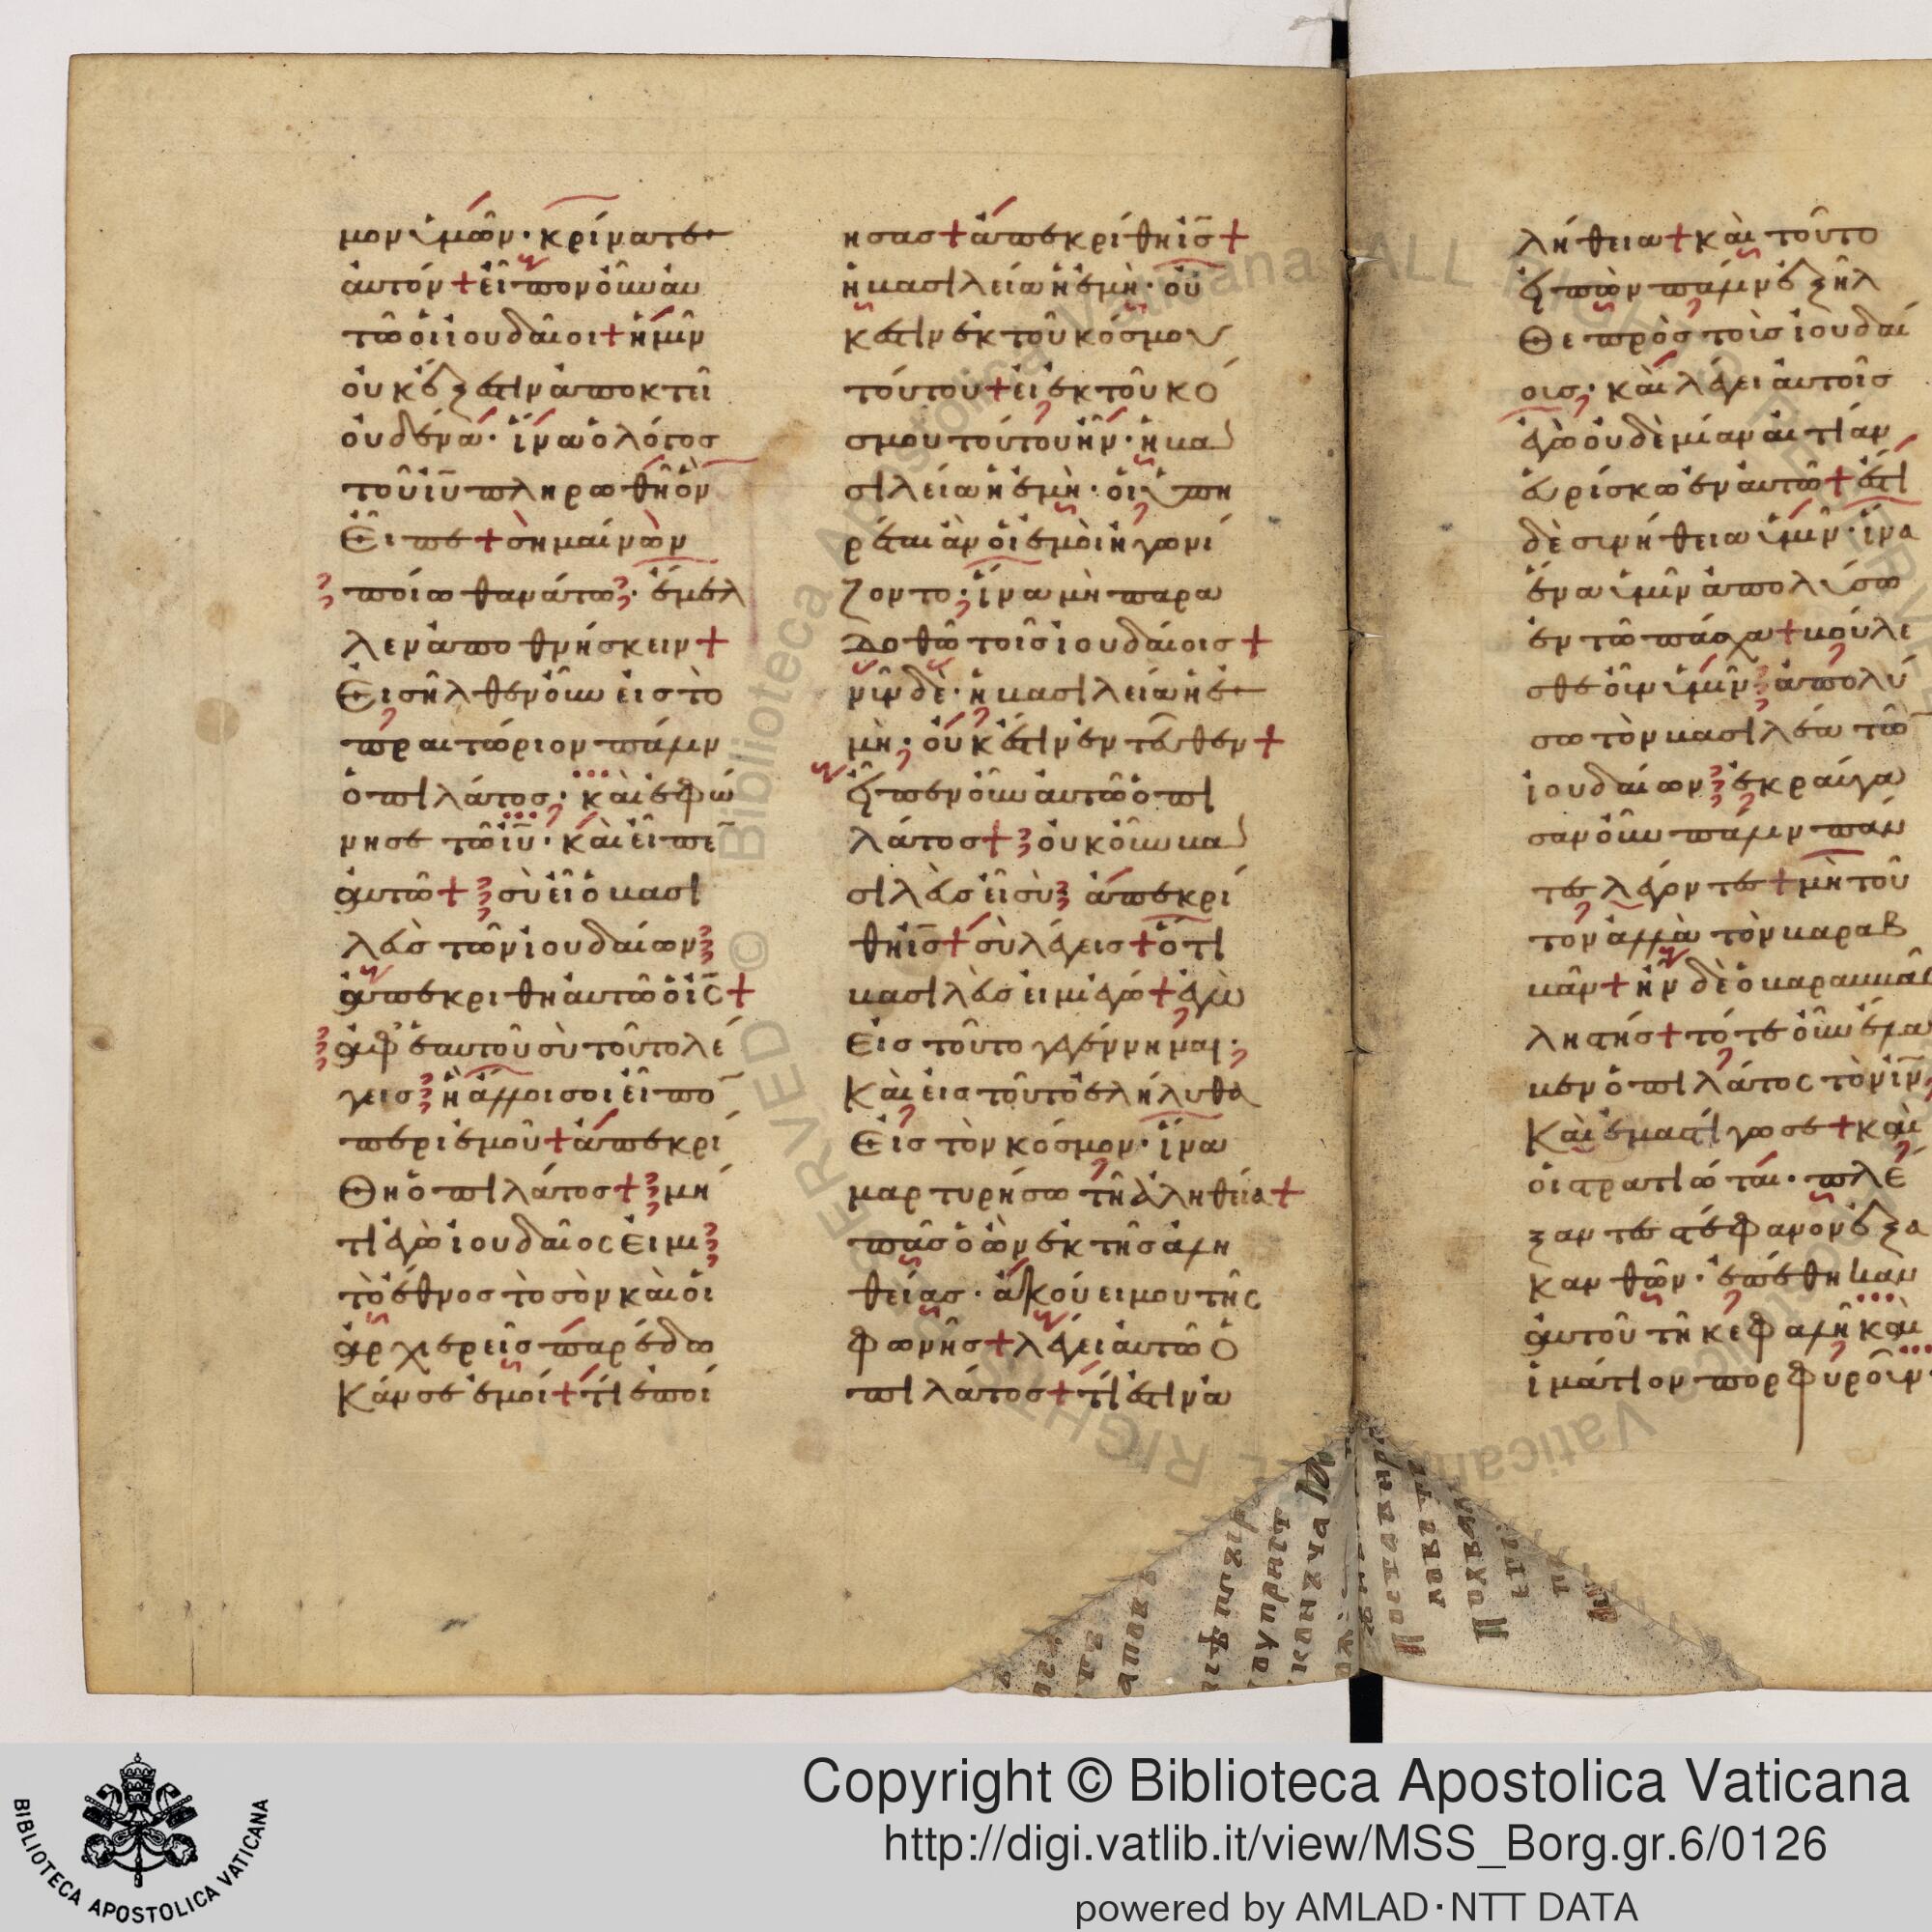 μον ὑμῶν· κρίνατε
ἀυτόν + εἶπον ὀῦν ἀυ
τῶ ὁι ἰουδαῖοι + ἡμῖν
ὀυκ ἔξεστιν ἀποκτεῖ
ναι ὀυδένα· ἵνα ὁ λόγος
τοῦ ἰῦ πληρωθῆ ὃν
εἶπε + σημαίνων
ποίω θανάτω· ἔμελ
λεν ἀποθνήσκειν +
Εἰσῆλθεν ὀῦν εἰς τὸ
πραιτώριον πάλιν
ὁ πιλάτος· κὰι ἐφώ
νησε τῶ ἰῦ· κὰι εἶπε
ἀυτῶ + σὺ εἶ ὁ βασι
λεὺς τῶν ἰουδαίων
ἀπεκρίθη ἀυτῶ ὁ ἰς +
ἀφ' ἑαυτοῦ σὺ τοῦτο λέ
γεις ἢ ἄλλοι σοι εἶπο
περὶ ἐμοῦ + ἀπεκρί
θη ὁ πιλάτος + μή
τι ἐγὼ ἰουδαῖος εἰμι
τὸ ἔθνος τὸ σὸν κὰι ὁι
ἀρχιερεῖς παρέδω
κάν σε ἐμοί + τί ἐποί
ησας + ἀπεκρίθη ἰς +
ἡ βασιλεία ἡ ἐμὴ· ὀυ
κ ἔστιν ἐκ τοῦ κόσμου
τούτου + εἰ ἐκ τοῦ κό
σμου τούτου ἦν· ἡ βα
σιλεία ἡ ἐμὴ· ὁι ὑπη
ρέται ἂν ὁι ἐμὸι ἠγωνί
ζοντο· ἵνα μὴ παρα
δοθῶ τοῖς ἰουδάιοις +
νῦν δὲ· ἡ βασιλεία ἡ ἐ
μὴ· ὀυκ ἔστιν ἐντεῦθεν +
Εἶπεν ὀῦν ἀυτῶ ὁ πι
λάτος + ὀυκ ὀῦν βα
σιλεὺς εἶ σὺ ἀπεκρί
θη ἰς + σὺ λέγεις + ὅτι
βασιλεύς ειμι ἐγώ + ἐγὼ
Εἰς τοῦτο γεγέννημαι·
Κὰι εἰς τοῦτο ἐλήλυθα
Εἰς τὸν κόσμον· ἵνα
μαρτυρήσω τῆ ἀληθεία +
πᾶς ὁ ὢν ἐκ τῆς ἀλη
θείας· ἀκούει μου τῆς
φωνῆς + λέγει ἀυτῶ ὁ
πιλάτος + τί ἐστιν ἀ
λήθεια + κὰι τοῦτο
ἐιπὼν πάλιν ἐξῆλ
θε πρὸς τοὺς ἰουδαί
ους· κὰι λέγει ἀυτοῖς
ἐγὼ ὀυδὲ μίαν ἀιτίαν
ἑυρίσκω ἐν ἀυτῶ + ἔστι
δὲ συνήθεια ὑμῖν· ἵνα
ἕνα ὑμῖν ἀπολύσω
ἐν τῶ πάσχα + βούλε
σθε ὀῦν ὑμῖν ἀπολύ
σω τὸν βασιλέα τῶ
ἰουδαίων ἐκραύγα
σαν ὀῦν πάλιν πάν
τες λέγοντες + μὴ τοῦ
τον ἀλλὰ τὸν βαραβ
βᾶν + ἦν δὲ ὁ βαραββᾶς
ληστής + τότε ὀῦν ἔλα
βεν ὁ πιλάτος τὸν ἰν
Κὰι ἐμαστίγωσε + κὰι
ὁι στρατιῶται· πλέ
ξαντες στέφανον ἐξ α
κανθῶν· ἐπέθηκαν
ἀυτοῦ τῆ κεφαλῆ κὰι
ἱμάτιον πορφυροῦν·
Copyright © Biblioteca Apostolica Vaticana
http://digi.vatlib.it/view/MSS_Borg.gr.6/0126
powered by AMLAD·NTT DATA
BIBLIOTECA APOSTOLICA VATICANA